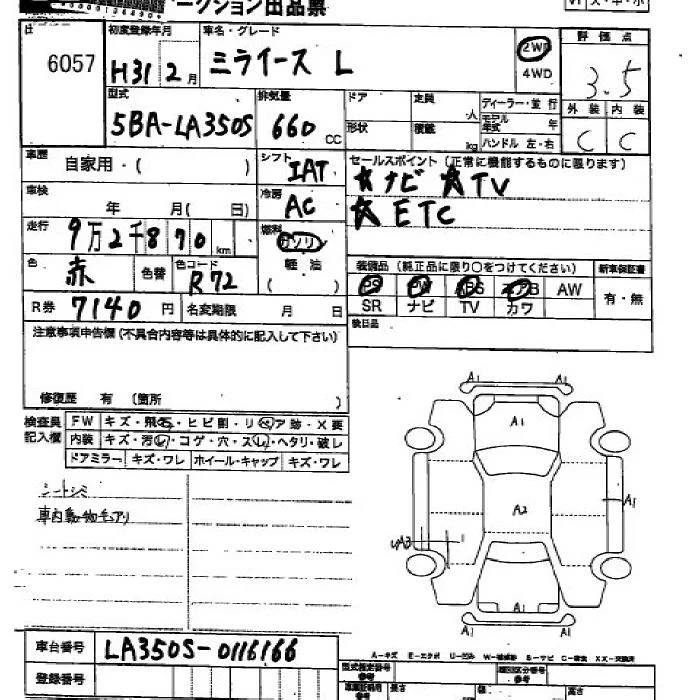 ークション出品票
6057
初度登録年月 H31 2月
車名・グレード ミライース L
2WD
4WD
評価点 3.5
型式 5BA-LA350S
排気量 660 CC
ドア
定員 人
形状
積載 kg
ディーラー・並行
モデル年式 年
ハンドル 左・右
外装 内装
C C
車歴 自家用・( )
シフト IAT
セールスポイント(正常に機能するものに限ります)
☆ナビ ☆TV
☆ETC
車検 年 月( 日)
冷房 AC
走行 9万2千870km
燃料 ガソリン
軽油
( )
色 赤 色替
色コード R72
装備品(純正品に限り○をつけてください)
新車保証書
PS PW ABS エアB AW
有・無
SR ナビ TV カワ
R券 7140円
名変期限 月 日
後日品
注意事項申告欄(不具合内容等は具体的に記入して下さい)
修復歴 有(箇所 )
検査員記入欄
FW キズ・飛石・ヒビ割・リペア跡・X要
内装 キズ・汚れ・コゲ・穴・スレ・ヘタリ・破レ
ドアミラー キズ・ワレ ホイール・キャップ キズ・ワレ
シートシミ
車内動物毛アリ
A1
A1 A1
A1
A2
A1 A1
A3
A1
A1 A1
車台番号 LA350S-0116166
登録番号
A-キズ E-エクボ U-凹み W-補修跡 S-サビ C-腐食 XX-交換済
型式指定番号
類別区分番号
長さ
幅
高さ